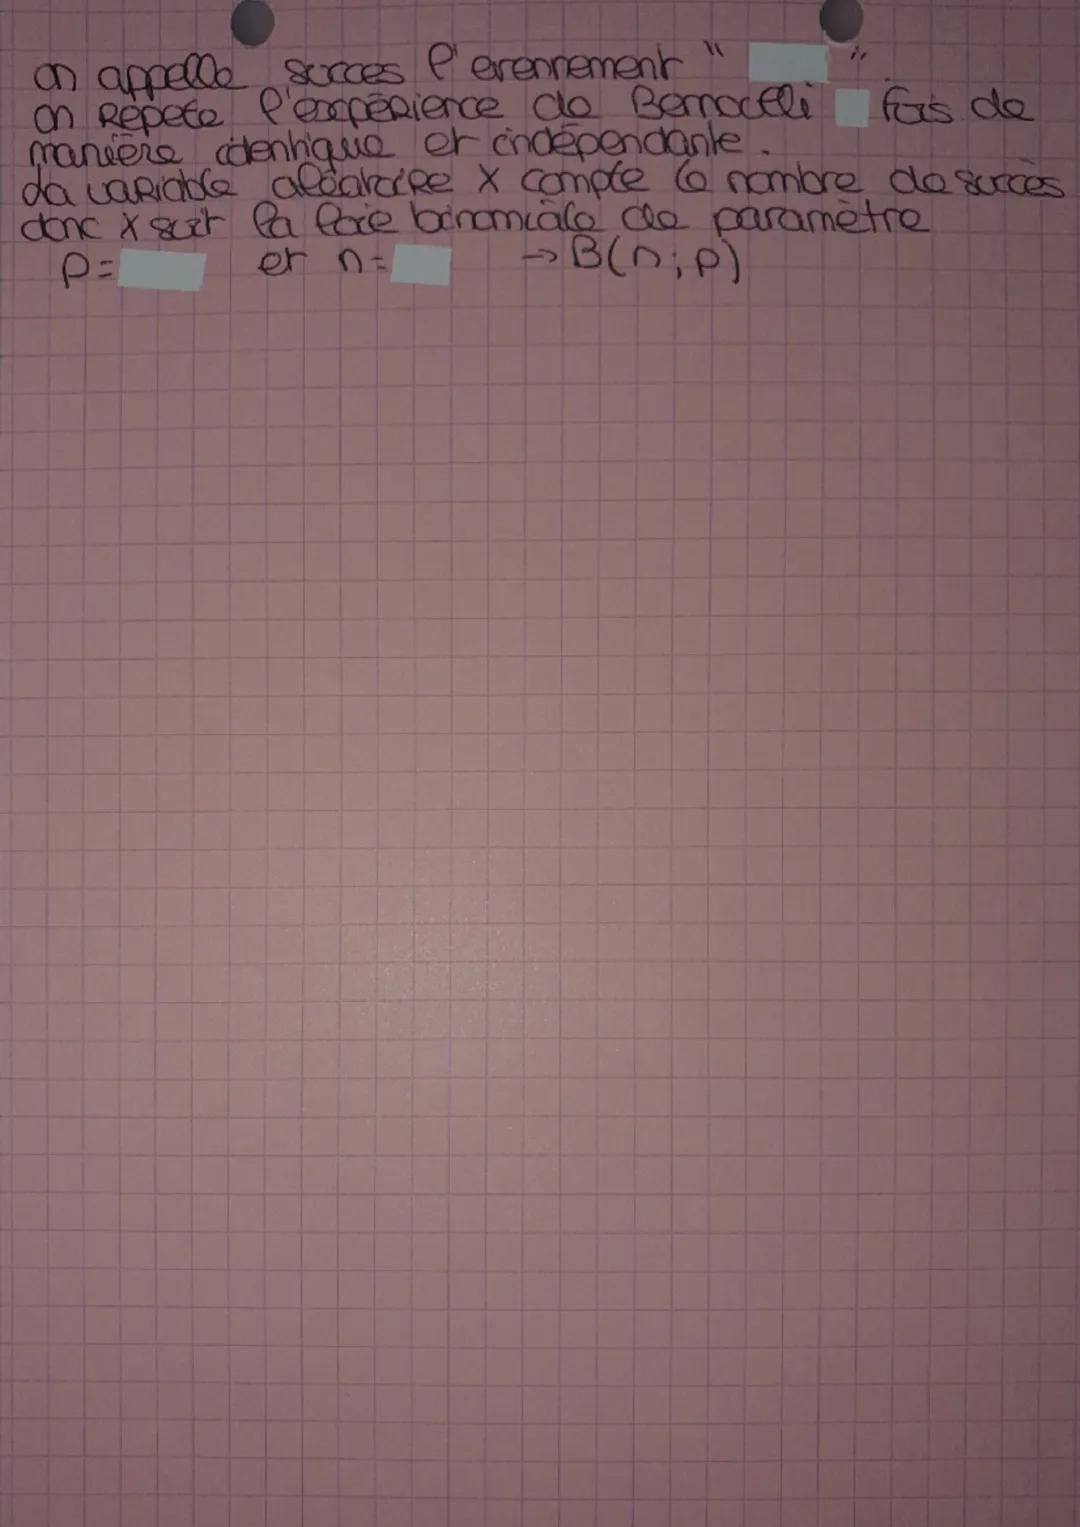 on appelle succes l'evennement " "
on Répete l'expérience de Bernoulli fois de
manière identique et indépendante.
La variable aléatoire X compte le nombre de succès
donc X suit la loie binomiale de paramètre
p= et n= → B(n;p)